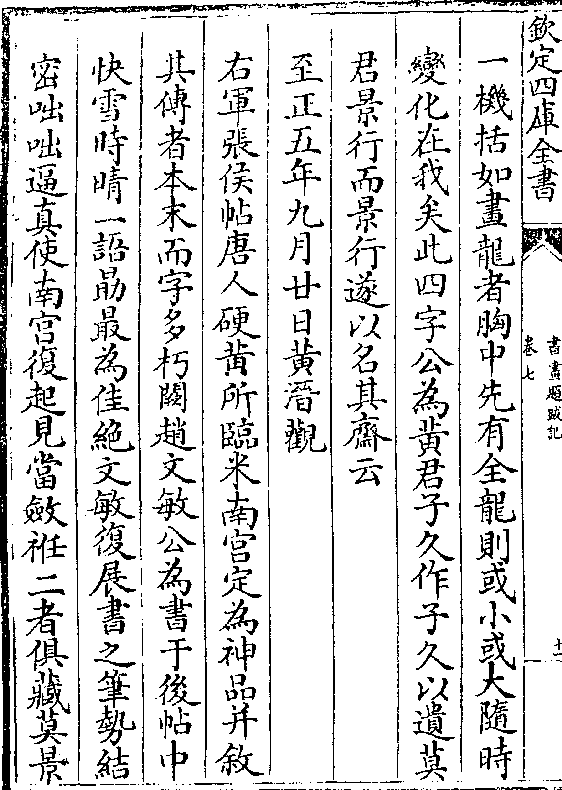 欽定四庫全書
書畫題跋記
卷七
十一
一機括如畫龍者胸中先有全龍則或小或大隨時
變化在我矣此四字公為黃君子久作子久以遺莫
君景行而景行遂以名其齋云
至正五年九月廿日黃溍觀
右軍張侯帖唐人硬黃所臨米南宫定為神品并敘
其傳者本末而字多朽闕趙文敏公為書于後帖中
快雪時晴一語勛最為佳絶文敏復展書之筆勢結
密咄咄逼真使南宫復起見當斂袵二者俱藏莫景